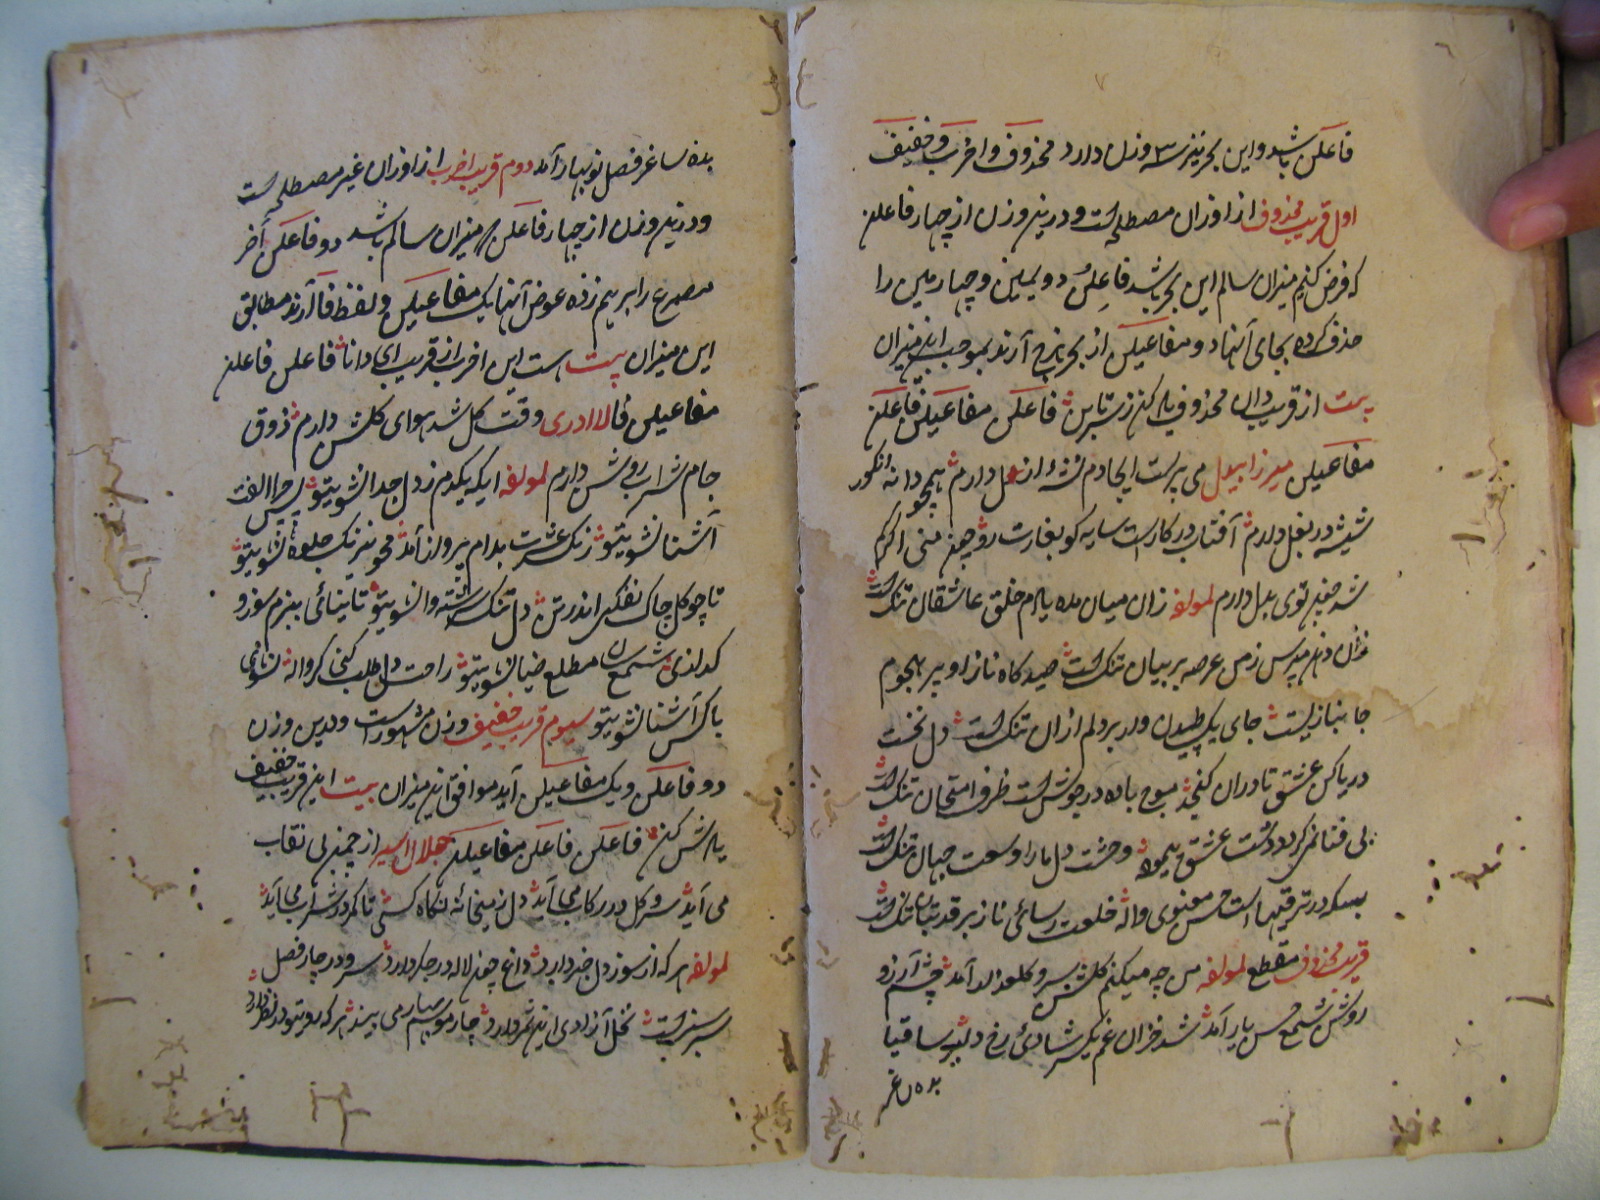 فاعلن باشد و این بحر نیز سه وزن دارد محذوف و اخرب و خفیف
اول قریب محذوف از اوزان مصطلح است و درین وزن از چهار فاعلن
که فرض کنیم میزان سالم این بحر باشد فاعلن دویمین و چهارمین را
حذف کرده بجای آنها دو مفاعیلن از بحر هزج آرند بموجب این میزان
بیت از قریب دان محذوف یاد کن ز تبرین فاعلن مفاعیلن فاعلن
مفاعیلن میرزا بیدل می پرست ایجادم نشهٔ ازل دارم همچو دانهٔ انگور
شیشه در بغل دارم آفتاب در کار است سایه کو بغارت رو چون منی اگر گم
شد چون توی بدل دارم لمولفه زان میان مده یادم خلق عاشقان تنگ است
زان دهن مپرس ز من عرصه بر بیان تنگ است صیدگاه ناز او پر هجوم
جانبازیست جای یک طپیدن ور بر دلم ازان تنگ است دل نخست
دریا کن عشق تا دران گنجد موج باده در جوش است ظرف امتحان تنگ است
بی فنا نمی گردد دشت عشق پیموده وحشت دل ما را وسعت جهان تنگ است
بسکه در ترقیها است حسن معنوی واله خلعت رسائی ناز بر قد بتان تنگ است
قریب محذوف مقطع لمولفه من چه میکنم گلشن سرو گلعذار آمد چشم آرزو
روشن شمع حسن یار آمد شد خزان غم یکسر شادی رخ دلبر ساقیا
بده ساغر
بده ساغر فصل نوبهار آمد دوم قریب اخرب از اوزان غیر مصطلح است
و درین وزن از چهار فاعلن که میزان سالم باشد دو فاعلن آخر
مصرع را برهم زده عوض آنها یک مفاعیلن و لفظ فا آرند مطابق
این میزان بیت هست این اخرب از قریب ای دانا فاعلن فاعلن
مفاعیلن فا لاادری وقت گل شد هوای گلشن دارم ذوق
جام شراب روشن دارم لمولفه ایکه یکدم ز دل جدا نشوی تو پس چرا الفت
آشنا نشوی تو رنگ عشرت بدام پرواز آمد محو نیرنگ جلوه نشوی تو
تا چو گل چاک نفکنی اندر تن دل تنگ وا نشوی تو تا نیائی ببزم سوز و
گدازی شمع سان مطلع ضیا نشوی تو راحت دل طلب کنی گر واله
با کس آشنا نشوی تو سیوم قریب خفیف وزن مشهور است و درین وزن
دو فاعلن و یک مفاعیلن آید موافق این میزان بیت این قریب خفیف
یادش کن فاعلن فاعلن مفاعیلن جلال اسیر از چمن بی نقاب
می آید سرو گل در رکاب می آید دل ز میخانهٔ نگاه کسی تا کمر در شراب می آید
لمولفه هر که از سوز دل خبر دارد داغ چون لاله در جگر دارد سرو در چار فصل
سرسبز است نخل آزادی این ثمر دارد چار موسم بهار می بیند هر که رو بتو در نظر دارد